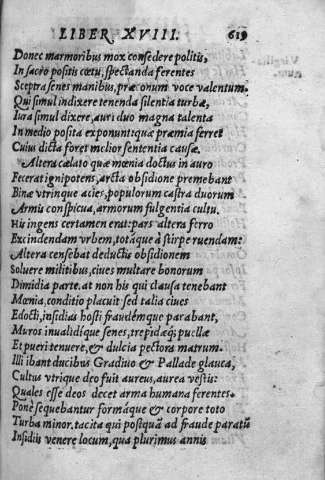 LIBER XVIII. 619
Donec marmoribus mox consedere politis,
In sacro positis cœtu, spectanda ferentes
Sceptra senes manibus, præconum voce valentum.
Qui simul indixere tenenda silentia turbæ,
Iura simul dixere, auri duo magna talenta
In medio posita exponuntque præmia ferret
Cuius dicta foret melior sententia causæ.
Altera cælato quæ mœnia doctus in auro
Fecerat ignipotens, arcta obsidione premebant
Binæ vtrinque acies, populorum castra duorum
Armis conspicua, armorum fulgentia cultu.
His ingens certamen erat: pars altera ferro
Excindendam vrbem, totáque à stirpe ruendam:
Altera censebat deductis obsidionem
Soluere militibus, ciues multare bonorum
Dimidia parte. at non his qui clausa tenebant
Mœnia, conditio placuit sed talia ciues
Edocti, insidias hosti fraudémque parabant,
Muros inualidique senes, trepidæq; puellæ
Et pueri tenuere, & dulcia pectora matrum.
Illi ibant ducibus Gradiuo & Pallade glauca,
Cultus vtrique deo fuit aureus, aurea vestis:
Quales esse deos decet arma humana ferentes.
Ponè sequebantur formáque & corpore toto
Turba minor. tacita qui postquā ad fraude paratū
Insidiis venere locum, qua plurimus annis